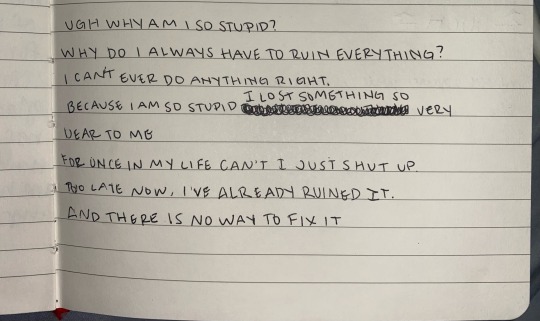 UGH WHY AM I SO STUPID?
WHY DO I ALWAYS HAVE TO RUIN EVERYTHING?
I CAN'T EVER DO ANYTHING RIGHT.
I LOST SOMETHING SO
BECAUSE I AM SO STUPID VERY
DEAR TO ME
FOR ONCE IN MY LIFE CAN'T I JUST SHUT UP.
TOO LATE NOW, I'VE ALREADY RUINED IT.
AND THERE IS NO WAY TO FIX IT